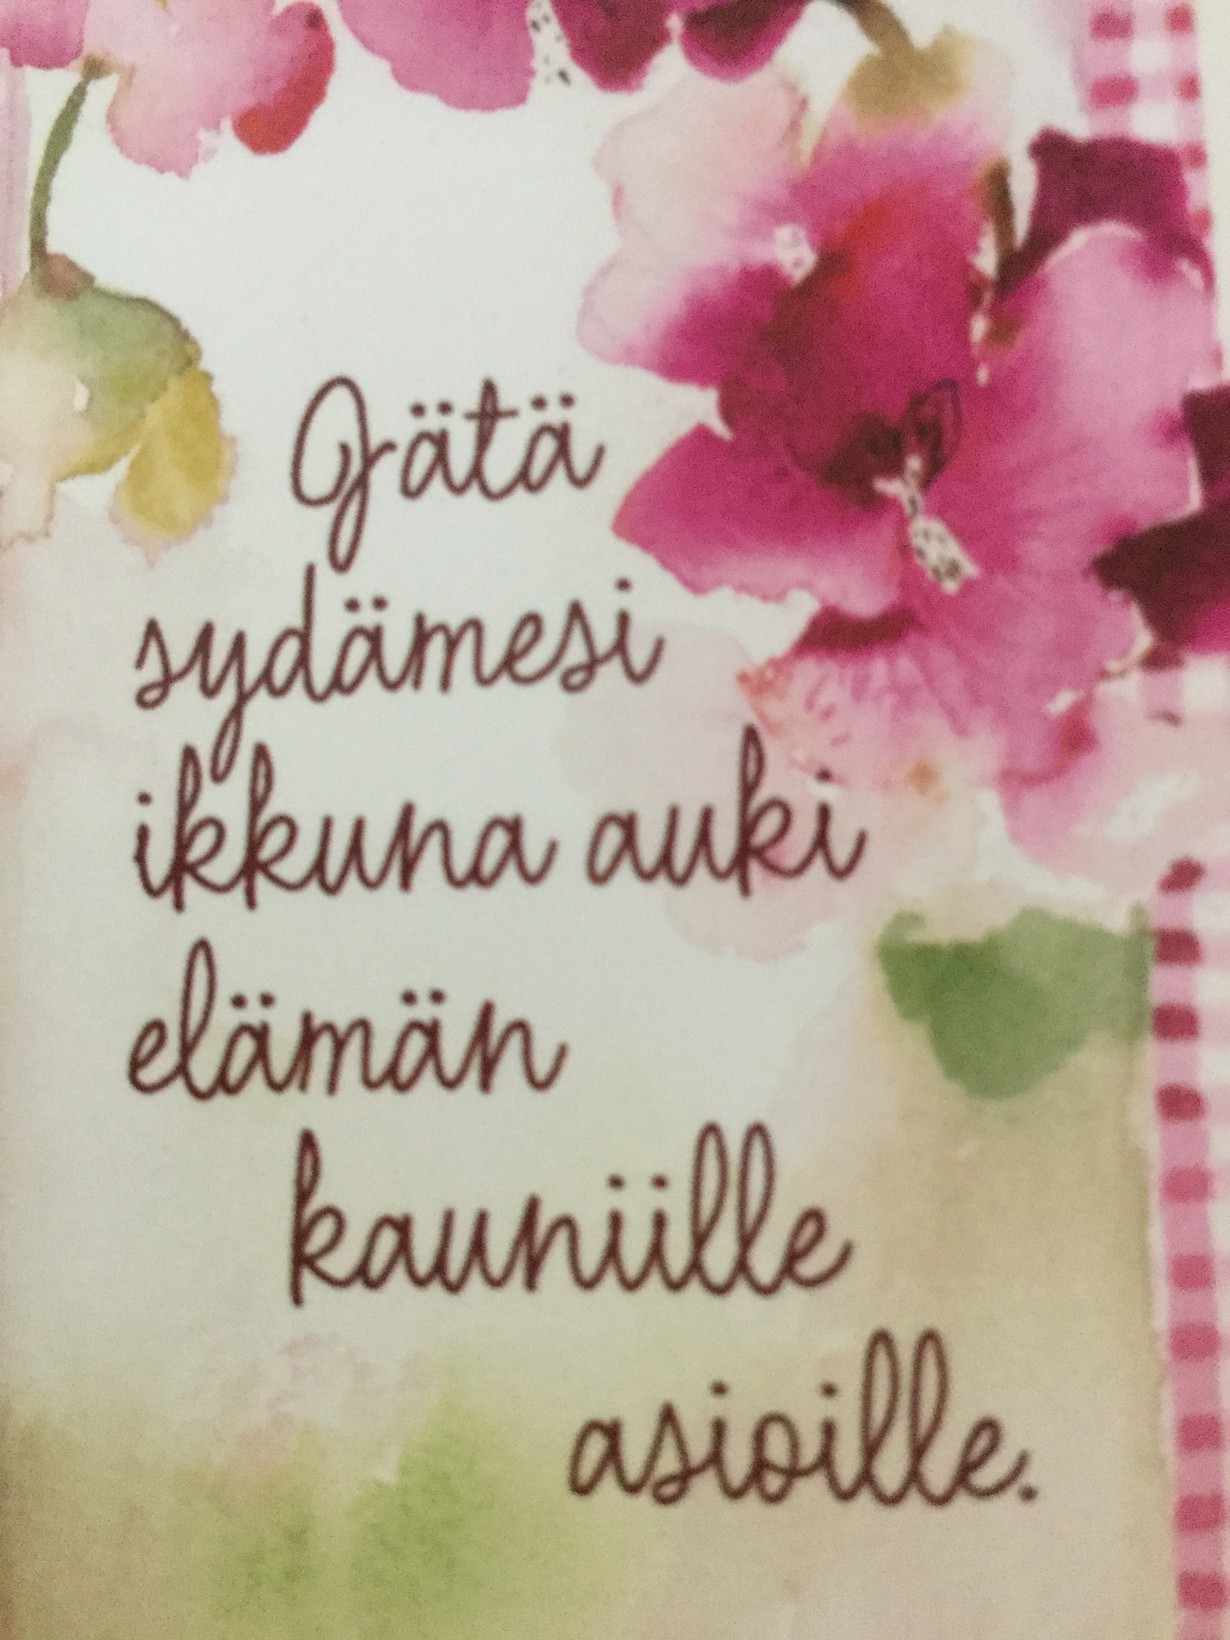 Jätä
sydämesi
ikkuna auki
elämän
kauniille
asioille.